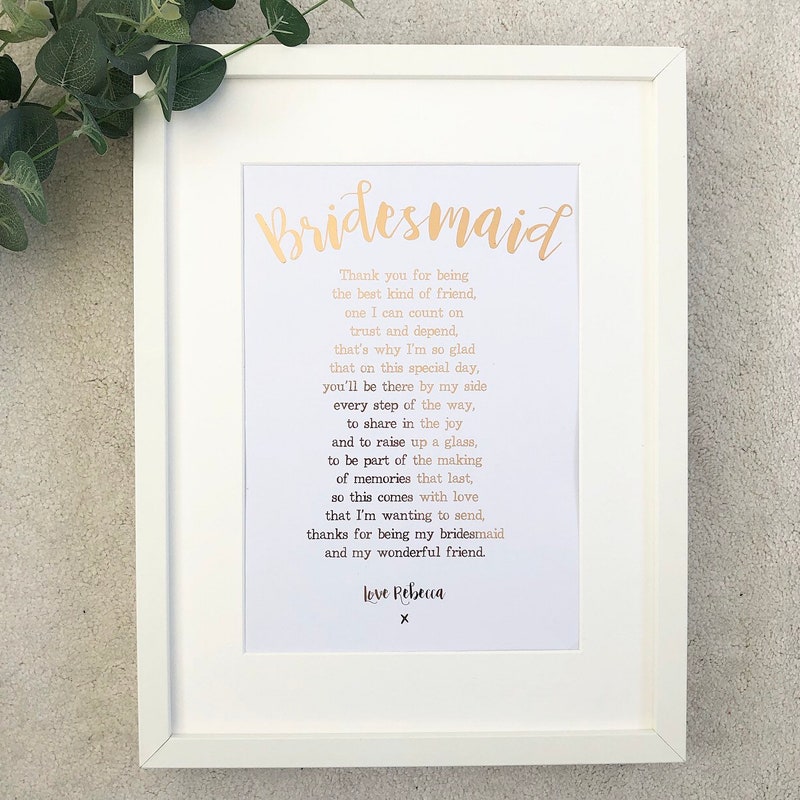 Bridesmaid
Thank you for being
the best kind of friend,
one I can count on
trust and depend,
that's why I'm so glad
that on this special day,
you'll be there by my side
every step of the way,
to share in the joy
and to raise up a glass,
to be part of the making
of memories that last,
so this comes with love
that I'm wanting to send,
thanks for being my bridesmaid
and my wonderful friend.
Love Rebecca
x